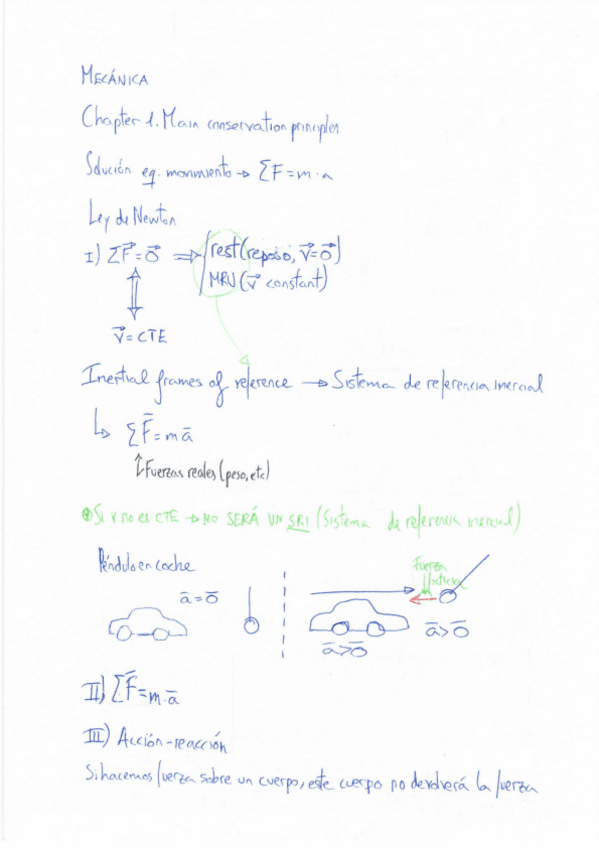 MECÁNICA
Chapter 1. Main conservation principles
Solución eq. movimiento → ΣF = m·a
Ley de Newton
I) ΣF⃗ = 0⃗ ⇒ rest (reposo, v⃗ = 0⃗)
MRU (v⃗ constant)
v⃗ = CTE
Inertial frames of reference → Sistema de referencia inercial
↳ ΣF̄ = mā
↑ Fuerzas reales (peso, etc)
Si v no es CTE → NO SERÁ UN SRI (Sistema de referencia inercial)
Péndulo en coche
Fuerza
ā = 0̄
ā > 0̄
ā > 0̄
II) ΣF̄ = m·ā
III) Acción-reacción
Si hacemos fuerza sobre un cuerpo, este cuerpo no devolverá la fuerza